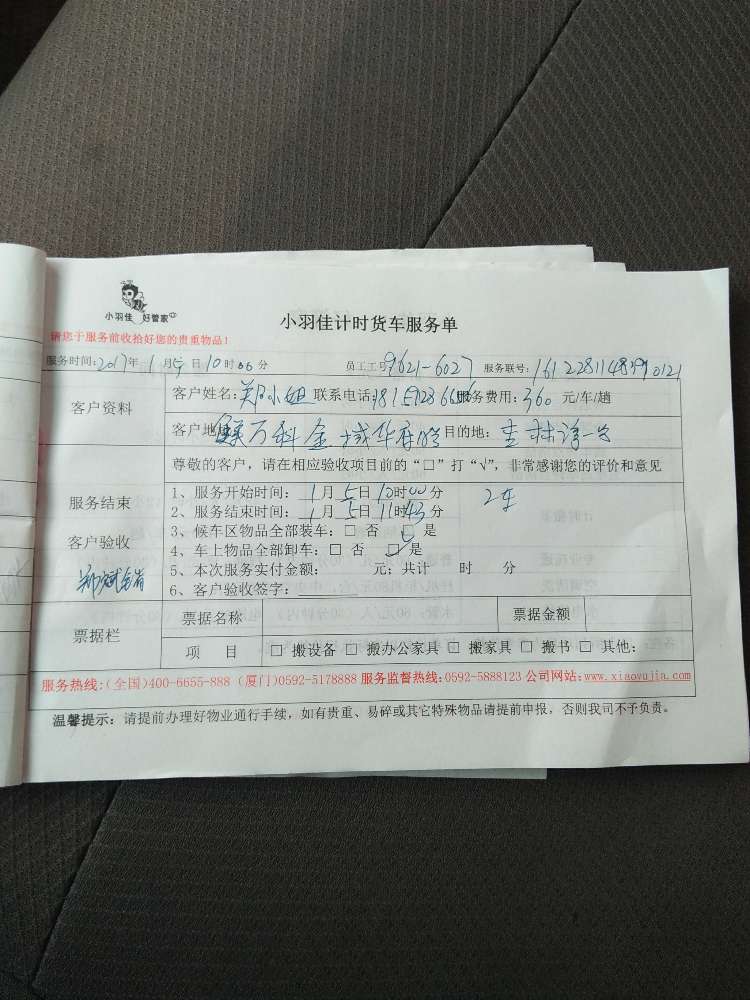 小羽佳 好管家
小羽佳计时货车服务单
请您于服务前收拾好您的贵重物品!
服务时间:2017年1月5日10时00分 员工工号9621-6027 服务联号:
客户资料
客户姓名:郑小姐 联系电话: 服务费用:360元/车/趟
客户地址 万科金域华府 目的地:
尊敬的客户,请在相应验收项目前的“□”打“√”,非常感谢您的评价和意见
服务结束
客户验收
1、服务开始时间:1月5日10时00分 2车
2、服务结束时间:1月5日11时43分
3、候车区物品全部装车:□ 否 □ 是
4、车上物品全部卸车:□ 否 ☑ 是
5、本次服务实付金额: 元;共计 时 分
6、客户验收签字:
票据栏
票据名称 票据金额
项 目 □ 搬设备 □ 搬办公家具 □ 搬家具 □ 搬书 □ 其他:
服务热线:(全国)400-6655-888 (厦门)0592-5178888 服务监督热线:0592-5888123 公司网站:www.xiaoyujia.com
温馨提示:请提前办理好物业通行手续,如有贵重、易碎或其它特殊物品请提前申报,否则我司不予负责。